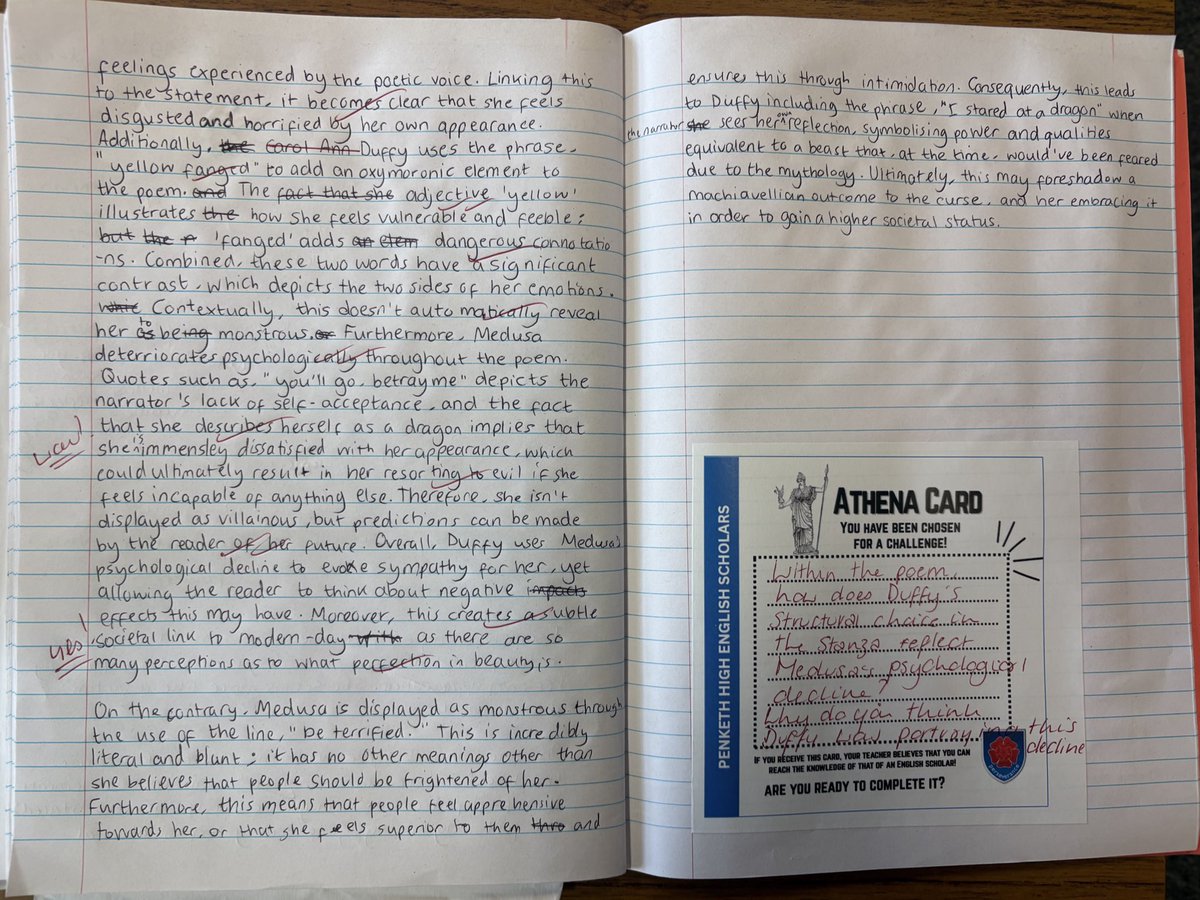 feelings experienced by the poetic voice. Linking this
to the statement, it becomes clear that she feels
disgusted and horrified by her own appearance.
Additionally, the Carol Ann Duffy uses the phrase,
"yellow fanged" to add an oxymoronic element to
the poem. and The fact that she adjective 'yellow'
illustrates the how she feels vulnerable and feeble;
but the 'fanged' adds an elem dangerous connotatio
-ns. Combined, these two words have a significant
contrast, which depicts the two sides of her emotions.
Contextually, this doesn't automatically reveal
her as to being monstrous. or Furthermore, Medusa
deteriorates psychologically throughout the poem.
Quotes such as, "you'll go, betray me" depicts the
narrator's lack of self-acceptance, and the fact
that she describes herself as a dragon implies that
she is immensley dissatisfied with her appearance, which
could ultimately result in her resorting to evil if she
feels incapable of anything else. Therefore, she isn't
displayed as villainous, but predictions can be made
by the reader of her future. Overall, Duffy uses Medusa's
psychological decline to evoke sympathy for her, yet
allowing the reader to think about negative impacts
effects this may have. Moreover, this creates a subtle
societal link to modern-day with as there are so
many perceptions as to what perfection in beauty is.
On the contrary, Medusa is displayed as monstrous through
the use of the line, "be terrified." This is incredibly
literal and blunt; it has no other meanings other than
she believes that people should be frightened of her.
Furthermore, this means that people feel apprehensive
towards her, or that she feels superior to them and
wow!
yes!
ensures this through intimidation. Consequently, this leads
to Duffy including the phrase, "I stared at a dragon" when
the narrator she sees her own reflection, symbolising power and qualities
equivalent to a beast that, at the time, would've been feared
due to the mythology. Ultimately, this may foreshadow a
machiavellian outcome to the curse, and her embracing it
in order to gain a higher societal status.
PENKETH HIGH ENGLISH SCHOLARS
ATHENA CARD
YOU HAVE BEEN CHOSEN
FOR A CHALLENGE!
Within the poem,
how does Duffy's
structural choice in
the stanza reflect
Medusa's psychological
decline?
Why do you think
Duffy was portraying this
decline
IF YOU RECEIVE THIS CARD, YOUR TEACHER BELIEVES THAT YOU CAN
REACH THE KNOWLEDGE OF THAT OF AN ENGLISH SCHOLAR!
ARE YOU READY TO COMPLETE IT?